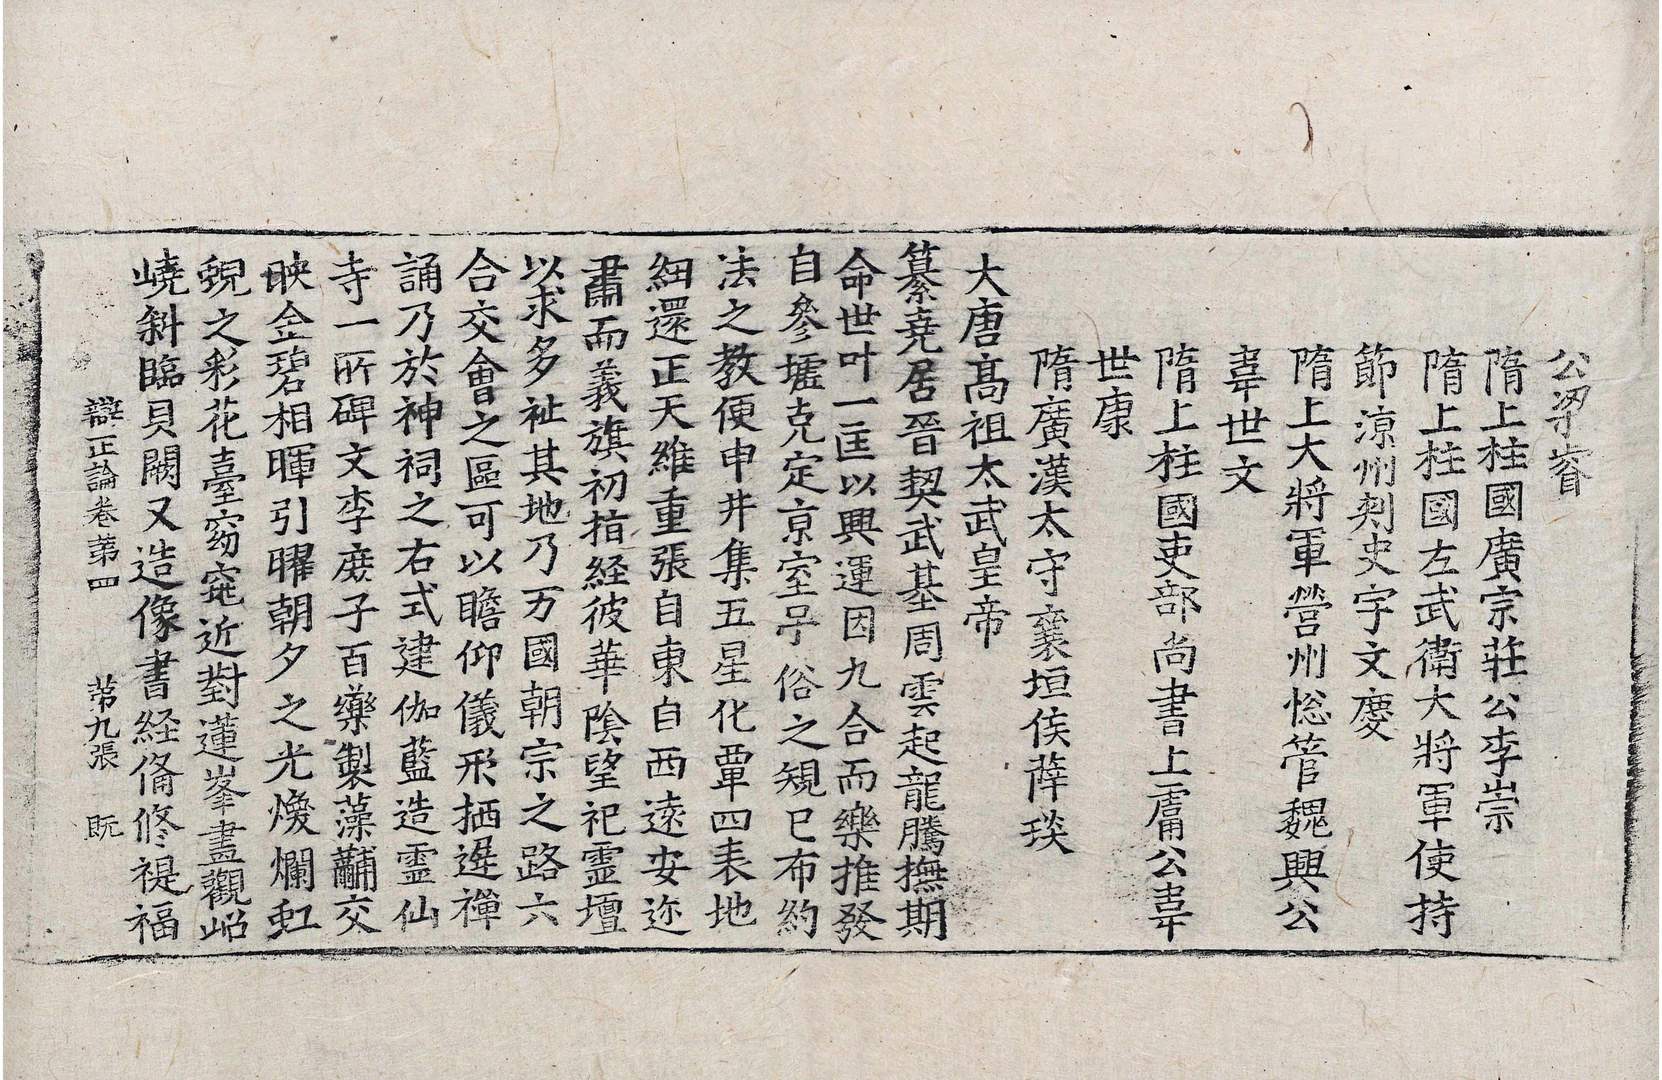 公梁睿
隋上柱國廣宗莊公李崇
隋上柱國左武衛大將軍使持
節涼州刾史宇文慶
隋上大將軍營州惣管魏興公
韋世文
隋上柱國吏部尚書上庸公韋
世康
隋廣漢太守襄垣侯薛琰
大唐高祖太武皇帝
纂堯居晉契武基周雲起龍騰撫期
命世叶一匡以興運因九合而樂推發
自參墟克定京室弔俗之䂓已布約
法之教便申井集五星化覃四表地
紐還正天維重張自東自西遠安迩
肅而義旗初指経彼華陰望祀靈壇
以求多祉其地乃万國朝宗之路六
合交會之區可以瞻仰儀形栖遲禪
誦乃於神祠之右式建伽藍造靈仙
寺一所碑文李庶子百藥製藻黼交
映金碧相暉引曜朝夕之光煥爛虹
蜺之彩花臺窈窕近對蓮峯畫觀岧
嶢斜臨貝闕又造像書経備修禔福
辯正論卷第四 第九張 旣